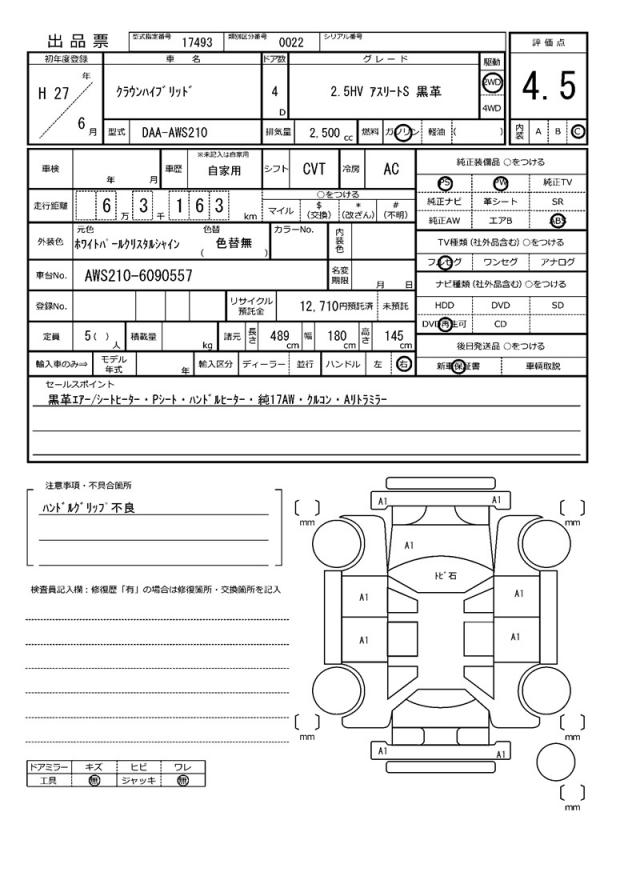 出品票
型式指定番号 17493 類別区分番号 0022 シリアル番号
初年度登録 車名 ドア数 グレード 駆動 評価点
H 27 年 6 月 クラウンハイブリッド 4 D 2.5HV アスリートS 黒革 2WD 4WD 4.5
型式 DAA-AWS210 排気量 2,500 cc 燃料 ガソリン 軽油 ( ) 内装 A B C
車検 年 月 車歴 ※未記入は自家用 自家用 シフト CVT 冷房 AC
走行距離 6 万 3 千 1 6 3 km ○をつける
マイル $ (交換) * (改ざん) # (不明)
外装色 元色 ホワイトパールクリスタルシャイン 色替 ( 色替無 ) カラーNo. 内装色
車台No. AWS210-6090557 名変期限 月 日
登録No. リサイクル預託金 12,710円預託済 未預託
定員 5( ) 人 積載量 kg 諸元 長さ 489 cm 幅 180 cm 高さ 145 cm
輸入車のみ⇒ モデル年式 年 輸入区分 ディーラー 並行 ハンドル 左 右
純正装備品 ○をつける
PS PW 純正TV
純正ナビ 革シート SR
純正AW エアB ABS
TV種類 (社外品含む) ○をつける
フルセグ ワンセグ アナログ
ナビ種類 (社外品含む) ○をつける
HDD DVD SD
DVD再生可 CD
後日発送品 ○をつける
新車保証書 車輌取説
セールスポイント
黒革エアー/シートヒーター・Pシート・ハンドルヒーター・純17AW・クルコン・Aリトラミラー
注意事項・不具合箇所
ハンドルグリップ不良
検査員記入欄：修復歴「有」の場合は修復箇所・交換箇所を記入
ドアミラー キズ ヒビ ワレ
工具 無 ジャッキ 無
A1 A1
[ ] mm [ ] mm
A1
トビ石
A1 A1
A1 A1
[ ] mm [ ] mm
A1 A1
[ ] mm